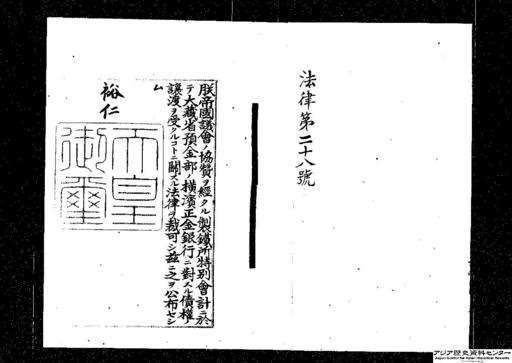 法律第二十八號
朕帝國議會ノ協贊ヲ經タル製鐵所特別會計ニ於
テ大藏省預金部ノ橫濱正金銀行ニ對スル債權ノ
讓渡ヲ受クルコトニ關スル法律ヲ裁可シ茲ニ之ヲ公布セシ
ム
裕仁
天皇
御璽
アジア歴史資料センター
Japan Center for Asian Historical Records